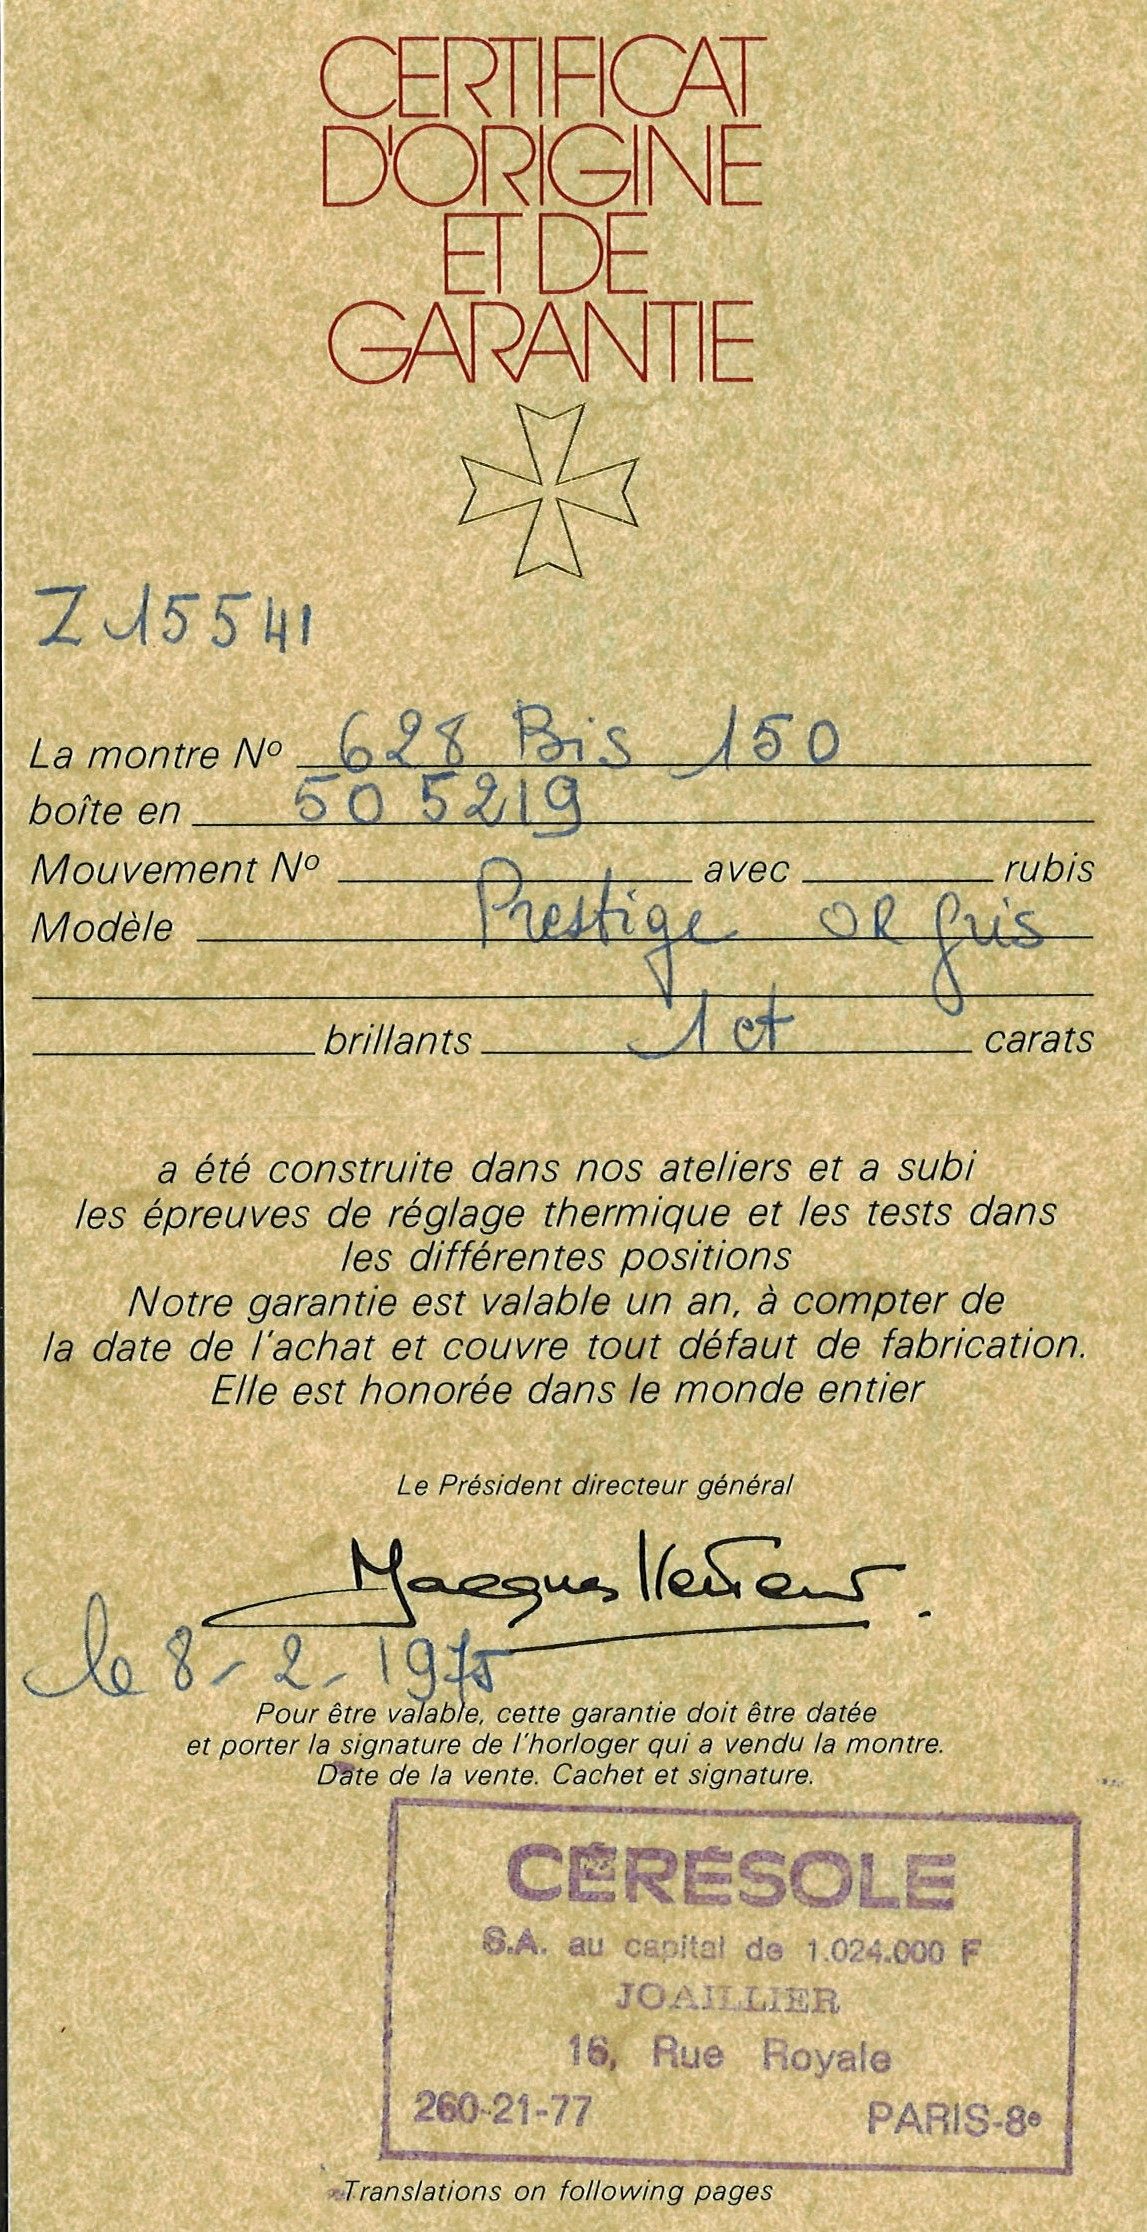 CERTIFICAT
D'ORIGINE
ET DE
GARANTIE
Z 15541
La montre Nº 628 Bis 150
boîte en 505219
Mouvement Nº avec rubis
Modèle Prestige OR gris
brillants 1 ct carats
a été construite dans nos ateliers et a subi
les épreuves de réglage thermique et les tests dans
les différentes positions
Notre garantie est valable un an, à compter de
la date de l'achat et couvre tout défaut de fabrication.
Elle est honorée dans le monde entier
Le Président directeur général
Jacques
le 8-2-1975
Pour être valable, cette garantie doit être datée
et porter la signature de l'horloger qui a vendu la montre.
Date de la vente. Cachet et signature.
CÉRÉSOLE
S.A. au capital de 1.024.000 F
JOAILLIER
16, Rue Royale
260-21-77 PARIS-8e
Translations on following pages